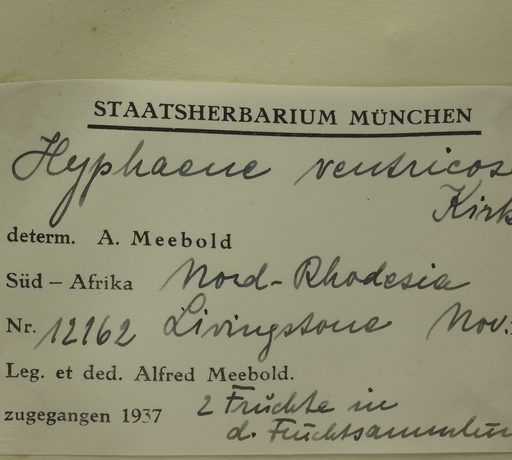 STAATSHERBARIUM MÜNCHEN
Hyphaene ventricos
Kirk
determ. A. Meebold
Süd – Afrika Nord-Rhodesia
Nr. 12162 Livingstone Nov.
Leg. et ded. Alfred Meebold.
zugegangen 1937 2 Früchte in
d. Fruchtsammlun